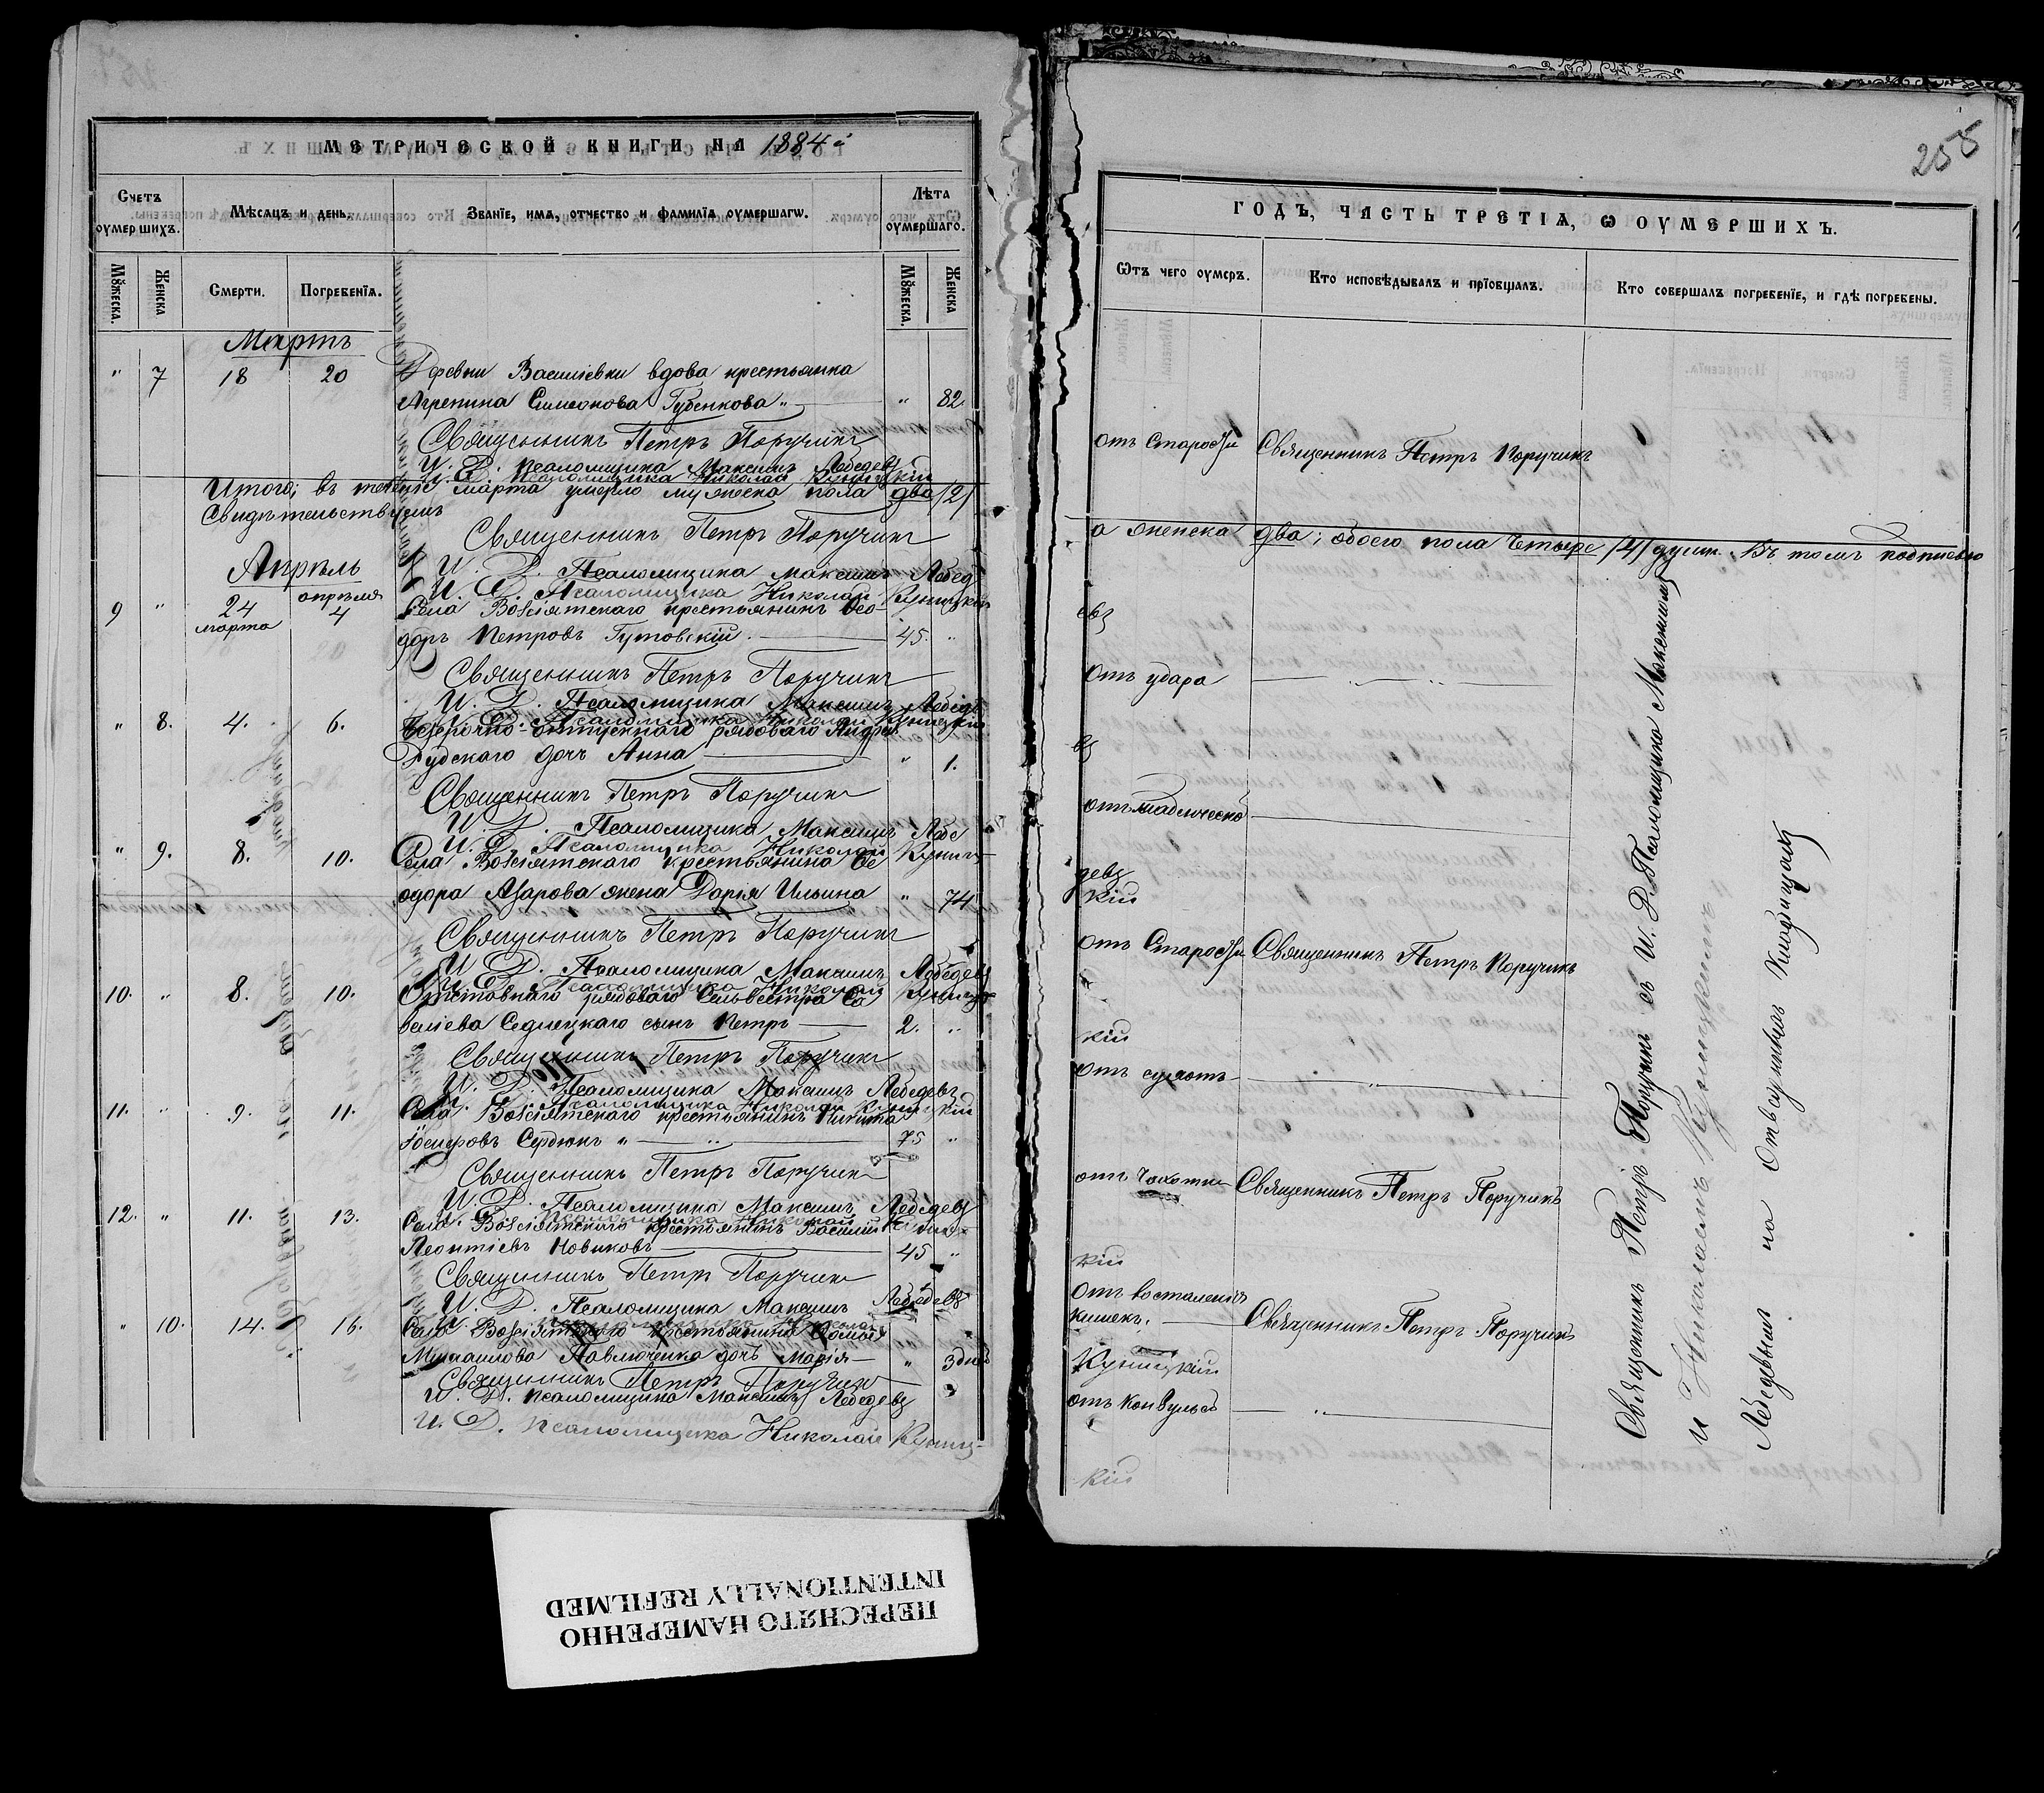 МЕТРИЧЕСКОЙ КНИГИ НА 1884 й
Счетъ оумершихъ.
Мѣсяцъ и день.
Званїе, имя, отчество и фамилїя оумершагѡ.
Лѣта оумершаго.
Мꙋжеска.
Женска
Смерти.
Погребенїя.
Мꙋжеска.
Женска
Мартъ
" 7 18 20 Деревни Василіевки вдова крестьянка
Агрепина Симеонова Губенкова " — " 82.
Священникъ Петръ Поручикъ
И. Д. Псаломщика Максимъ Лебедевъ
И. Д. Псаломщика Николай Куницкій
Итого; въ теченіе марта умерло мужеска пола два /2/
Свидѣтельствуемъ
Священникъ Петръ Поручикъ
Апрѣль
И. Д. Псаломщика Максимъ Лебед
И. Д. Псаломщика Николай Куницкій
9 " 24 марта апрѣля 4 Села Возсіятскаго крестьянинъ Ѳео-
доръ Петровъ Гутовскій. — 45. "
Священникъ Петръ Поручикъ
И. Д. Псаломщика Максимъ Лебед
И. Д. Псаломщика Николай Куницкій
" 8. 4. 6. Безсрочно-отпущеннаго рядоваго Андрея
Рудскаго дочь Анна — " 1.
Священникъ Петръ Поручикъ
И. Д. Псаломщика Максимъ Лебе
И. Д. Псаломщика Николай Куниц-
" 9. 8. 10. Села Возсіятскаго крестьянина Ѳе
одора Азарова жена Дарья Ильина " 74
Священникъ Петръ Поручикъ
И. Д. Псаломщика Максимъ Лебедевъ
И. Д. Псаломщика Николай Куниц-
10. " 8. 10. Отставнаго рядоваго Сельвестра Са
веліева Седлецкаго сынъ Петръ — 2. "
Священникъ Петръ Поручикъ
И. Д. Псаломщика Максимъ Лебедевъ
И. Д. Псаломщика Николай Куницкій
11. " 9. 11. Села Возсіятскаго крестьянинъ Никита
Сердюкъ " — 75 "
Священникъ Петръ Поручикъ
И. Д. Псаломщика Максимъ Лебедевъ
И. Д. Псаломщика Николай Куниц-
12. " 11. 13. Села Возсіятскаго крестьянинъ Василій
Леонтіевъ Новиковъ — 45 "
Священникъ Петръ Поручикъ
И. Д. Псаломщика Максимъ Лебедевъ
И. Д. Псаломщика Николай
" 10. 14. 16. Села Возсіятскаго крестьянина Ѳомы
Михаилова Павлюченка дочь Марія — " 3 дней
Священникъ Петръ Поручикъ
И. Д. Псаломщика Максимъ Лебедевъ
И. Д. Псаломщика Николай Куниц-
258
ГОДЪ, ЧАСТЬ ТРЕТІЯ, Ѡ ОУМЕРШИХЪ.
Ѿтъ чего оумеръ.
Кто исповѣдывалъ и прїобщалъ.
Кто совершалъ погребенїе, и гдѣ погребены.
отъ Старости Священникъ Петръ Поручикъ
а женска два; обоего пола четыре /4/ душъ. Въ томъ подписью
евъ
Отъ удара — " —
въ
отъ младенческой —
девъ
кій
отъ Старости Священникъ Петръ Поручикъ
кій
Отъ сухотъ — " —
отъ Чахотки Священникъ Петръ Поручикъ
кій
Отъ воспаленія
кишекъ. — Священникъ Петръ Поручикъ
Куницкій
отъ Конвульсій — " —
кій
Священникъ Петръ Поручикъ съ И. Д. Псаломщика Максимомъ
и Николаемъ Куницкимъ
Лебедевымъ на Отведенномъ Кладбищѣ
ПЕРЕСНЯТО НАМЕРЕННО
INTENTIONALLY REFILMED